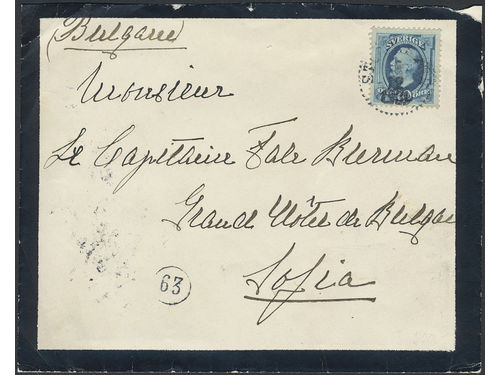 (Bulgarie)
SVERIGE
Monsieur
Le Capitaine Fale Bierman
Grand Hôtel de Bulgarie
Sofia
63